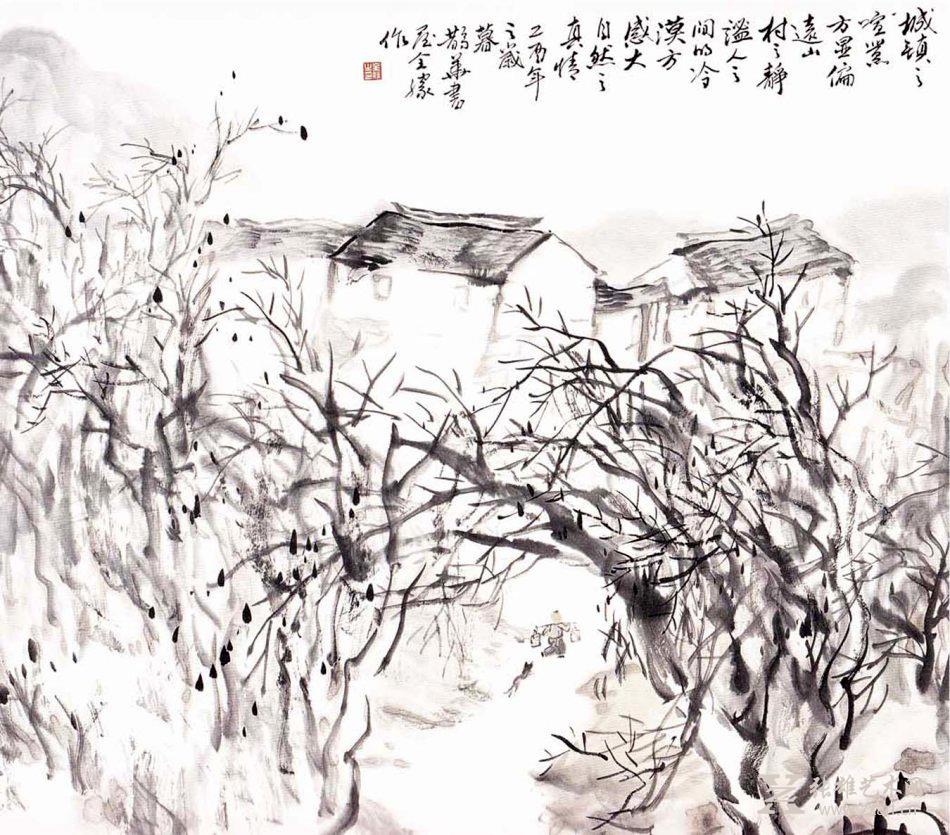 城镇之
喧嚣
方显偏
遠山
村之静
谧人之
间的冷
漠方
感大
自然之
真情
乙酉年
之歲
暮
鹊華書
屋全
作
张雄艺术网